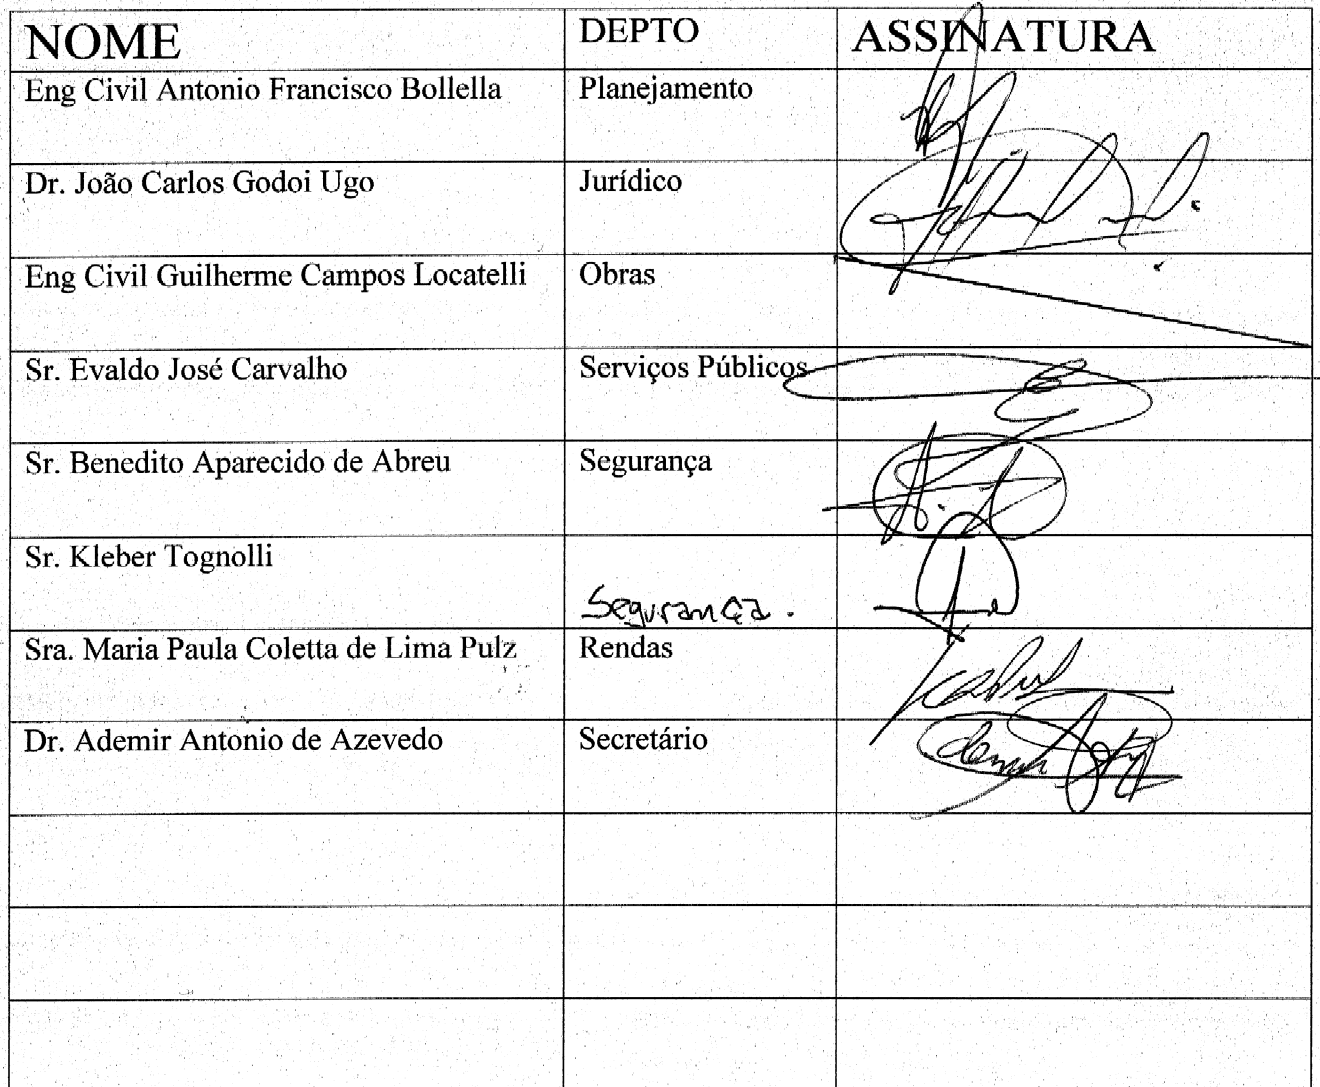 NOME DEPTO ASSINATURA
Eng Civil Antonio Francisco Bollella Planejamento
Dr. João Carlos Godoi Ugo Jurídico
Eng Civil Guilherme Campos Locatelli Obras
Sr. Evaldo José Carvalho Serviços Públicos
Sr. Benedito Aparecido de Abreu Segurança
Sr. Kleber Tognolli Segurança.
Sra. Maria Paula Coletta de Lima Pulz Rendas
Dr. Ademir Antonio de Azevedo Secretário